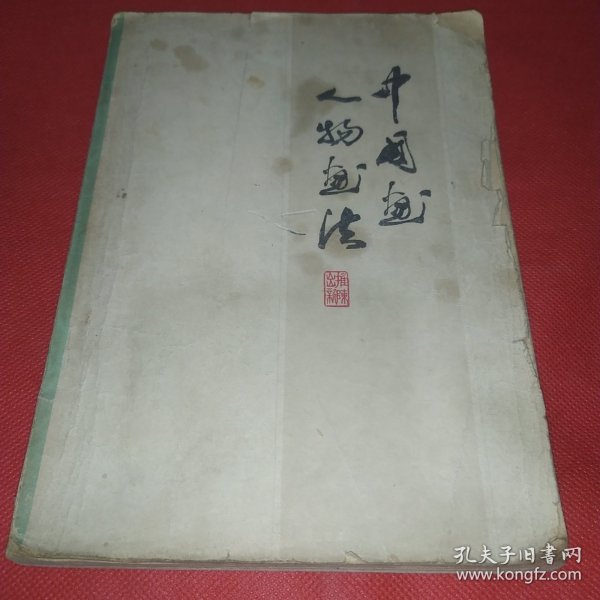 中国画
人物画法
推陈出新
孔夫子旧书网
www.kongfz.com